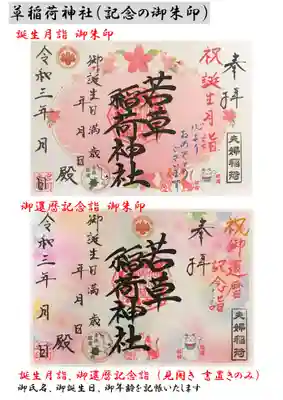 草稲荷神社(記念の御朱印)
誕生月詣 御朱印
奉拝
祝誕生月詣
心より
おめでとう
ございます
夫婦稲荷
若草
稲荷神社
御誕生日満 歳
年 月 日
殿
令和三年 月 日
御還暦記念詣 御朱印
奉拝
祝御還暦
記念詣
夫婦稲荷
若草
稲荷神社
御誕生日満 歳
年 月 日
殿
令和三年 月 日
誕生月詣、御還暦記念詣(見開き 書置きのみ)
御氏名、御誕生日、御年齢を記帳いたします